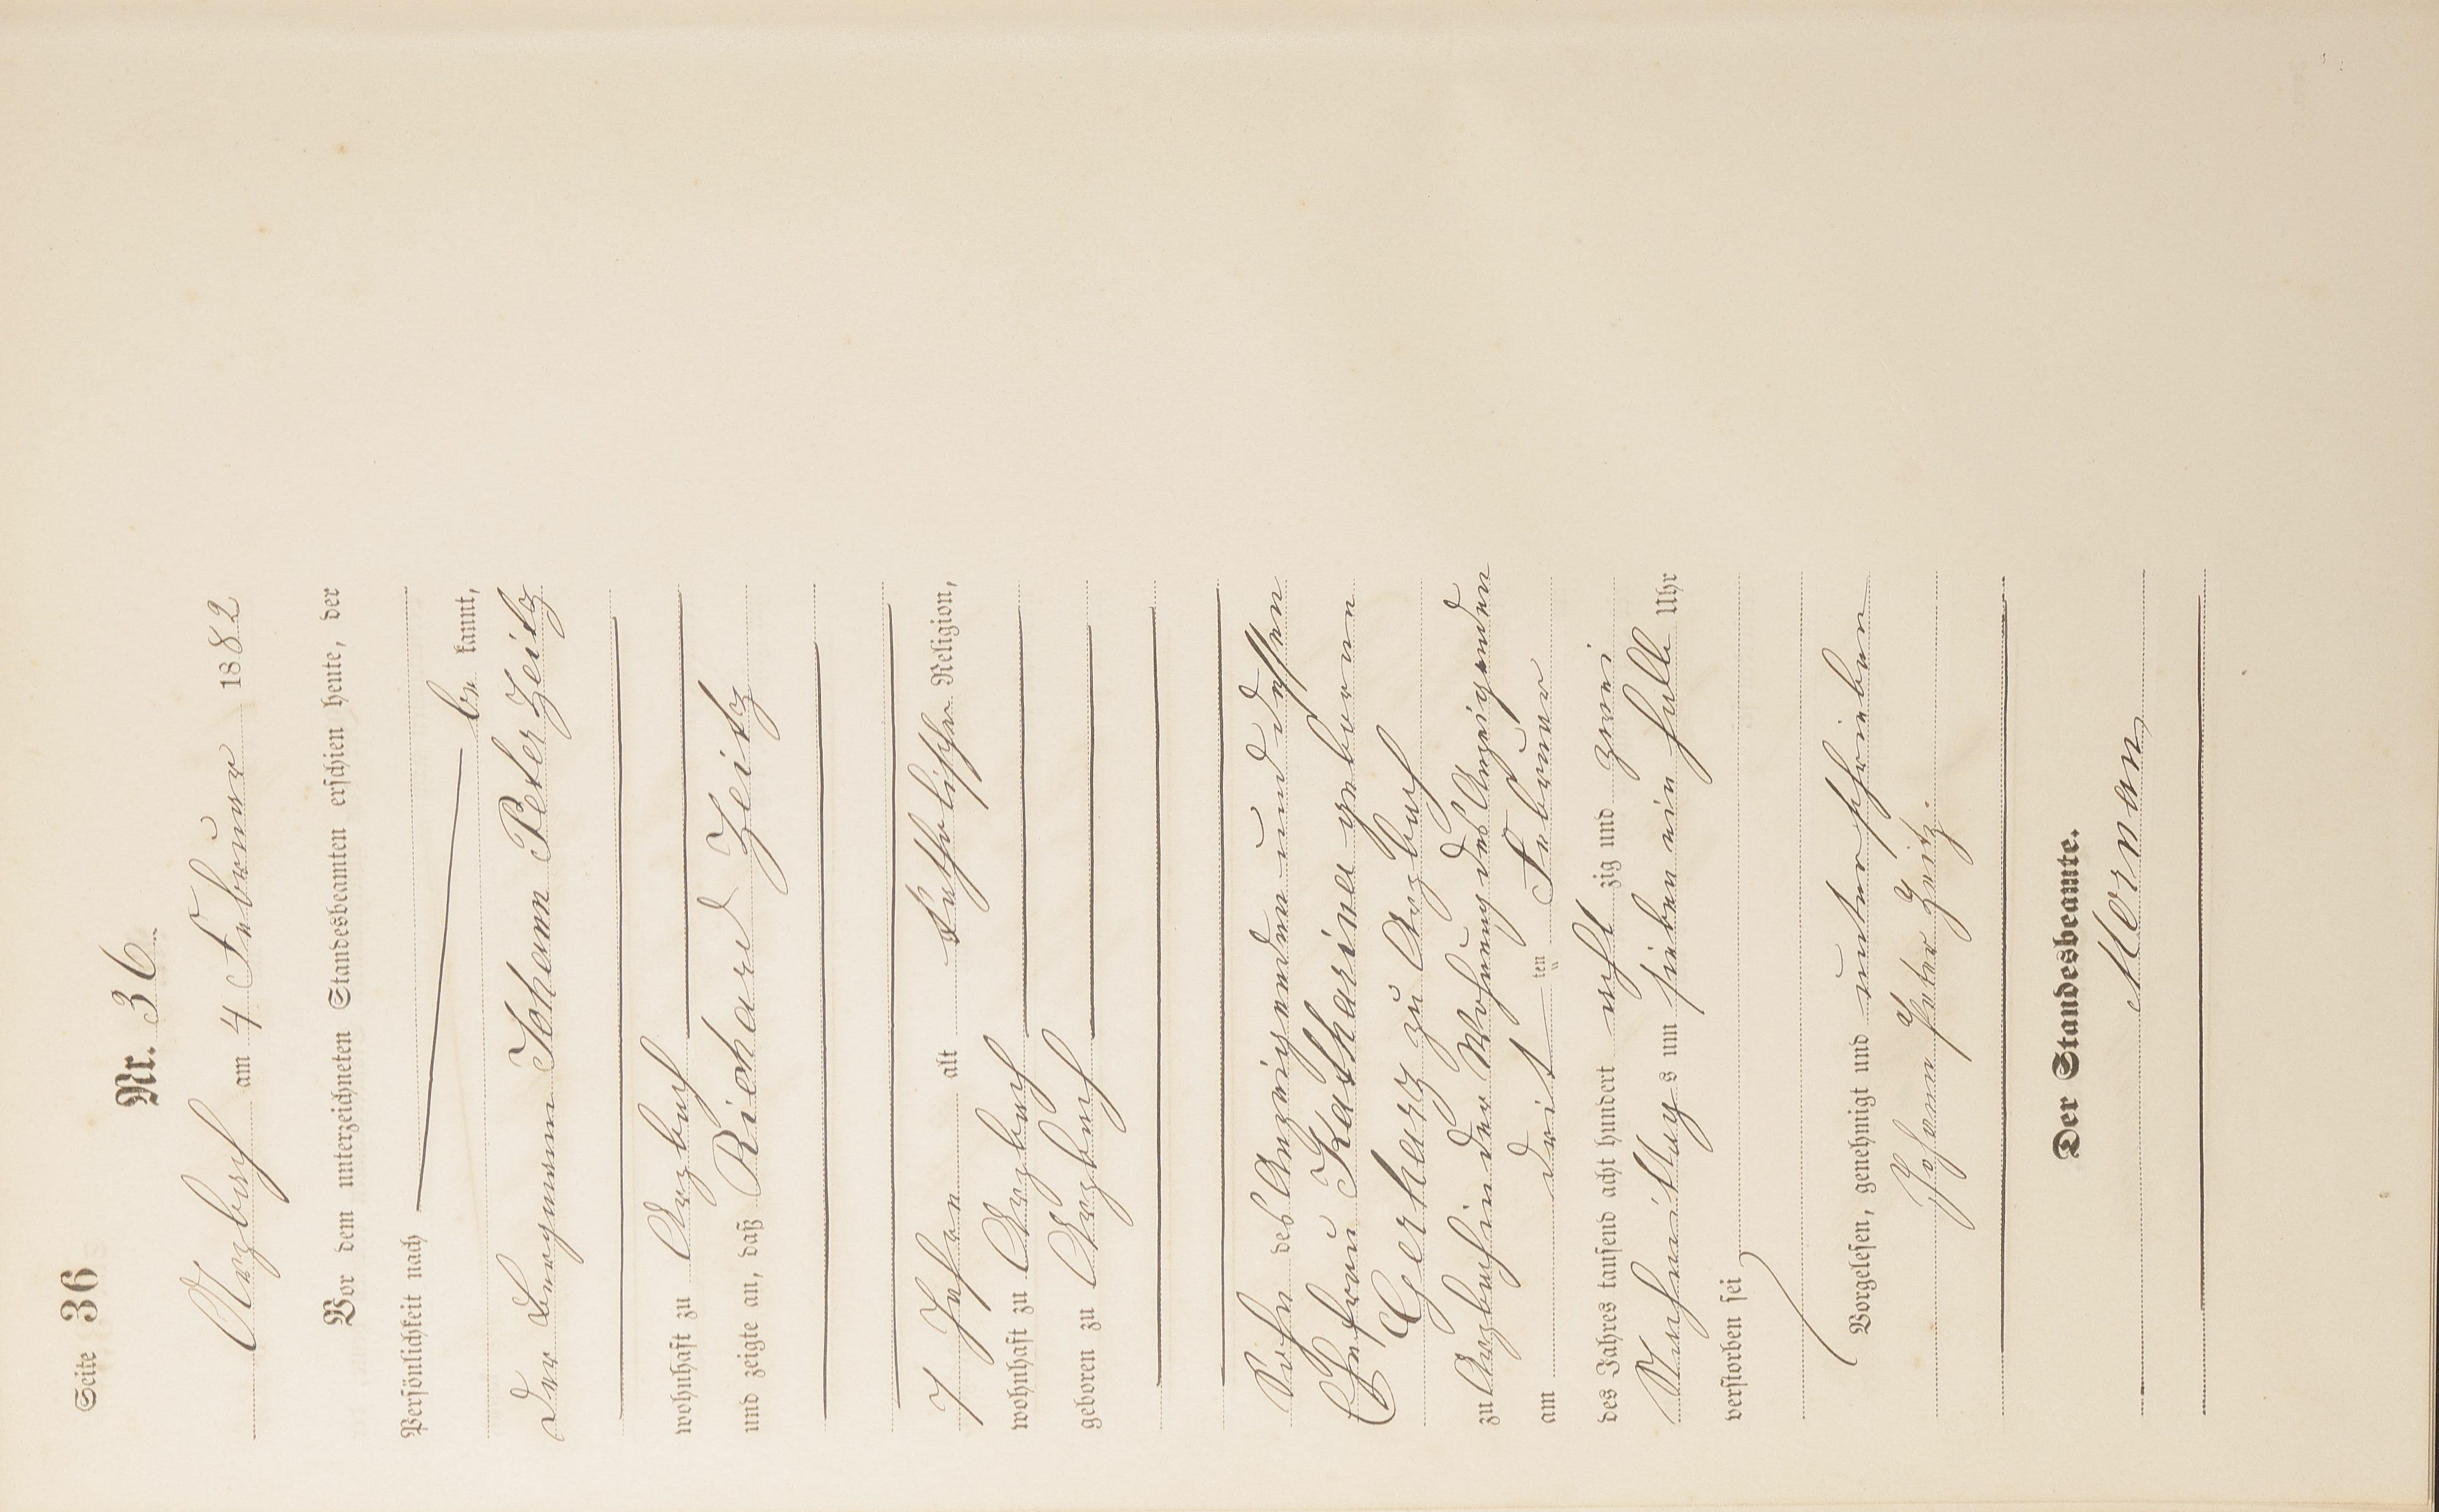 Seite 36
Nr. 36
Arzbach am 4 Februar 1882
Vor dem unterzeichneten Standesbeamten erschien heute, der
Persönlichkeit nach
be kannt,
der Bergmann Johann Peter Zeitz
wohnhaft zu Arzbach
und zeigte an, daß Richard Zeitz
7 Jahre alt katholischer Religion,
wohnhaft zu Arzbach
geboren zu Arzbach
Sohn des Anzeigenden und dessen
Ehefrau Katharina geborene
Gerharz zu Arzbach
zu Arzbach in der Wohnung des Anzeigenden
am drit ten Februar
des Jahres tausend acht hundert acht zig und zwei
Nachmittags um sieben ein halb Uhr
verstorben sei
Vorgelesen, genehmigt und unterschrieben
Johann Peter Zeitz.
Der Standesbeamte.